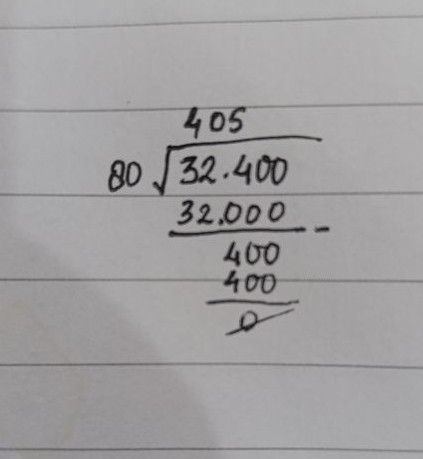 405
80 √32.400
32.000 -
400
400
0